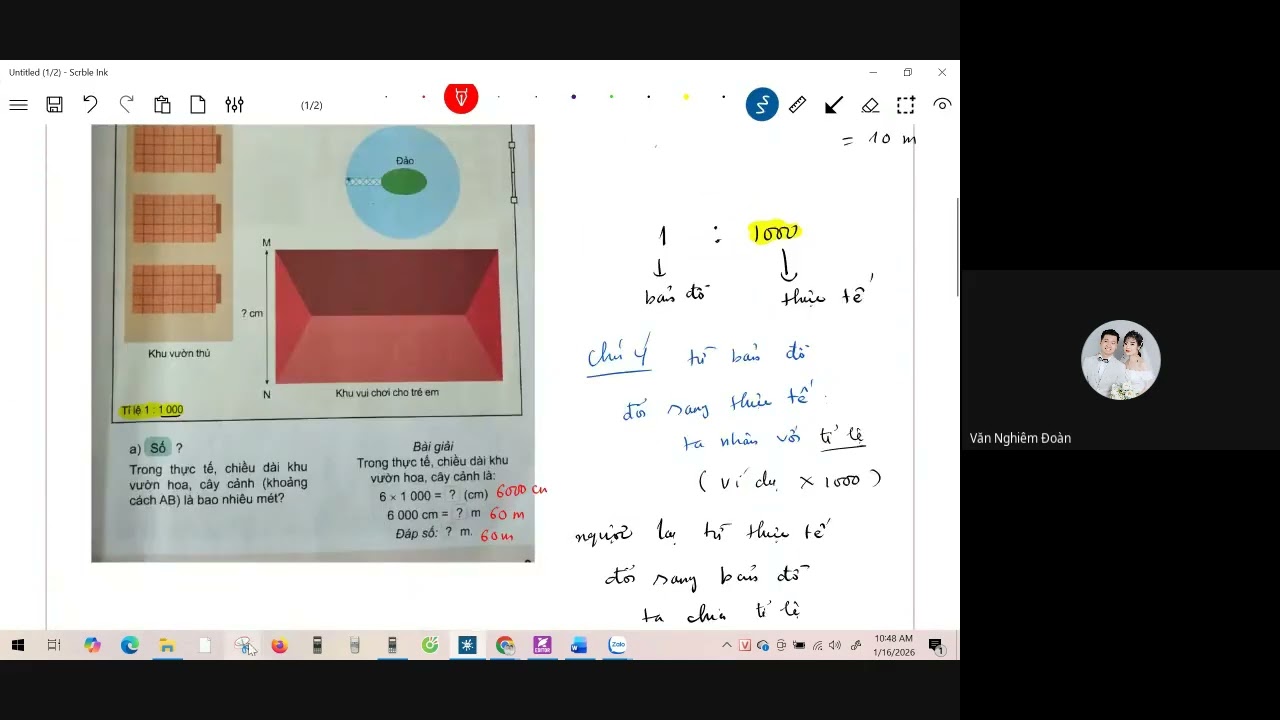 Untitled (1/2) - Scrble Ink
(1/2)
Đảo
M
? cm
N
Khu vườn thú
Khu vui chơi cho trẻ em
Tỉ lệ 1 : 1 000
a) Số ?
Trong thực tế, chiều dài khu
vườn hoa, cây cảnh (khoảng
cách AB) là bao nhiêu mét?
Bài giải
Trong thực tế, chiều dài khu
vườn hoa, cây cảnh là:
6 × 1 000 = ? (cm) 6000 cm
6 000 cm = ? m 60 m
Đáp số: ? m. 60m
= 10 m
1 : 1000
bản đồ thực tế
Chú ý từ bản đồ
đổi sang thực tế
ta nhân với tỉ lệ
( ví dụ × 1000 )
ngược lại từ thực tế
đổi sang bản đồ
ta chia tỉ lệ
Văn Nghiêm Đoàn
EDITOR
Zalo
V
10:48 AM
1/16/2026
1